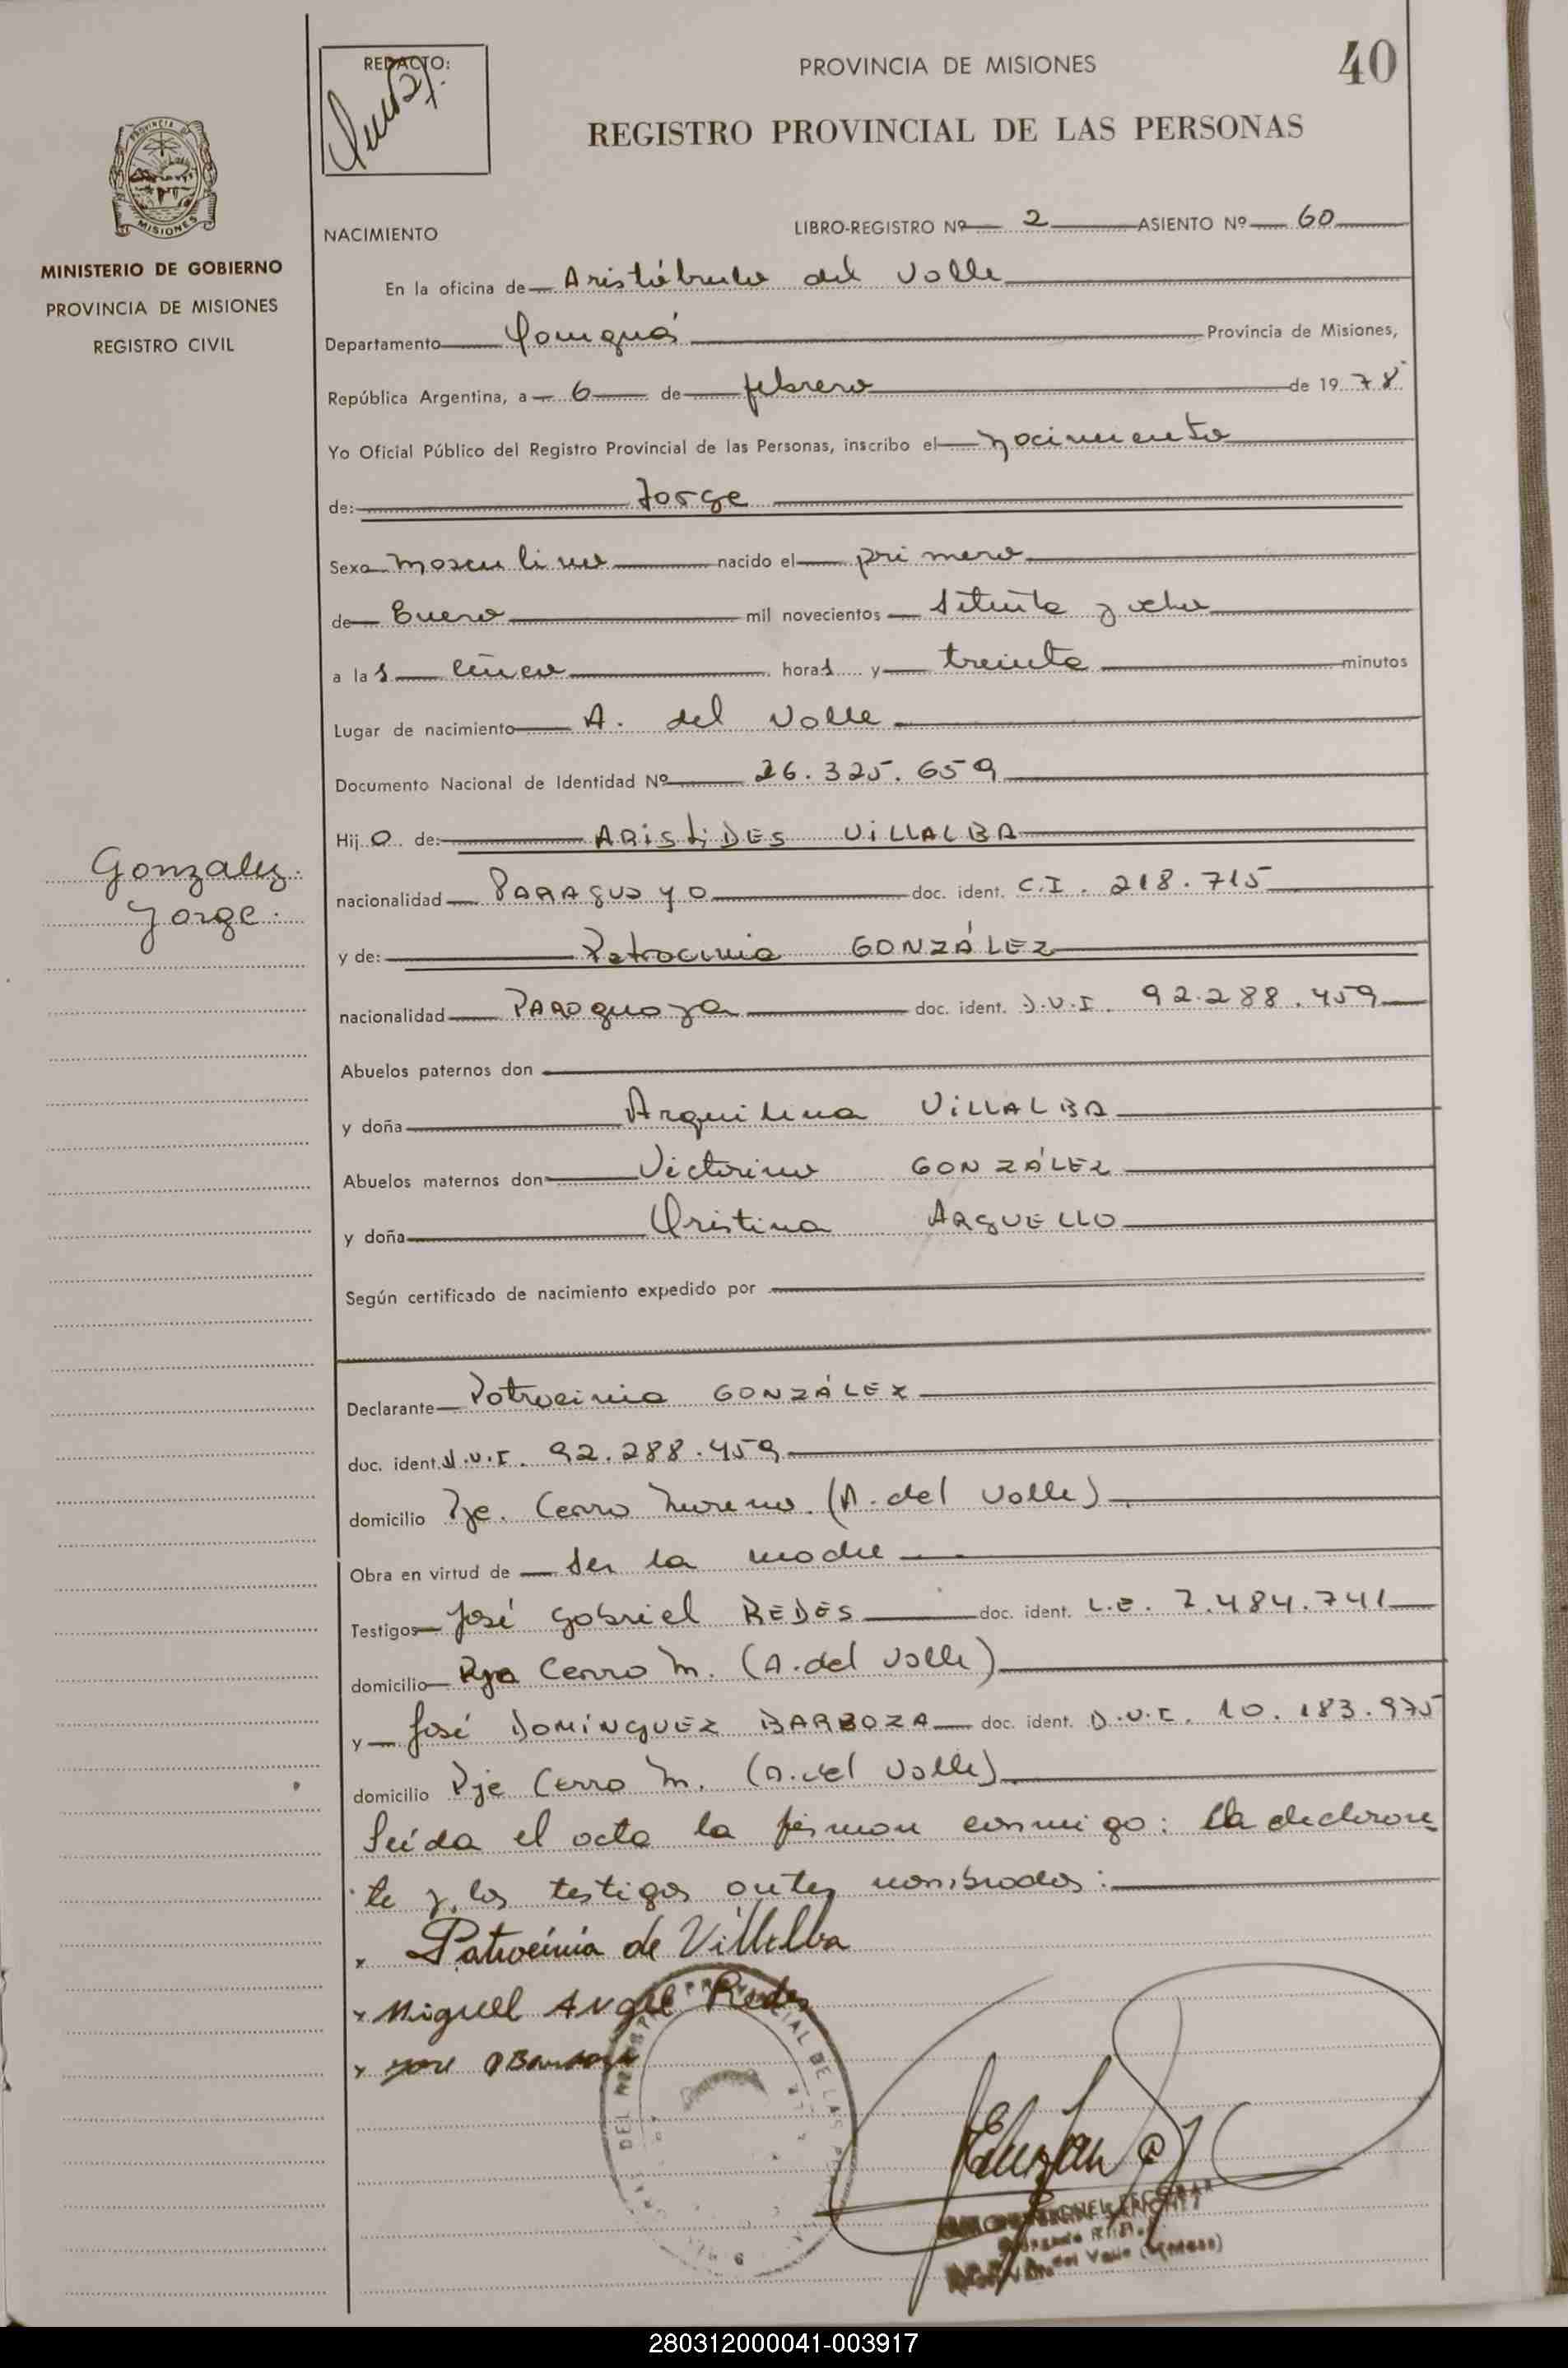 REDACTO:
PROVINCIA DE MISIONES
40
REGISTRO PROVINCIAL DE LAS PERSONAS
PROVINCIA DE
MISIONES
MINISTERIO DE GOBIERNO
PROVINCIA DE MISIONES
REGISTRO CIVIL
NACIMIENTO
LIBRO-REGISTRO Nº 2 ASIENTO Nº 60
En la oficina de Aristóbulo del Valle
Departamento Cainguás Provincia de Misiones,
República Argentina, a 6 de febrero de 1978
Yo Oficial Público del Registro Provincial de las Personas, inscribo el nacimiento
de: Jorge
Sexo masculino nacido el primero
de Enero mil novecientos setenta y ocho
a las cinco horas y treinta minutos
Lugar de nacimiento A. del Valle
Documento Nacional de Identidad Nº 26.325.659
Hijo de: ARISTIDES VILLALBA
Gonzalez
Jorge.
nacionalidad PARAGUAYO doc. ident. C.I. 218.715
y de: Patrocinia GONZÁLEZ
nacionalidad PARAguaya doc. ident. D.N.I. 92.288.459
Abuelos paternos don
y doña Arquilina VILLALBA
Abuelos maternos don Victorino GONZÁLEZ
y doña Cristina ARGUELLO
Según certificado de nacimiento expedido por
Declarante Patrocinia GONZÁLEZ
doc. ident. D.N.I. 92.288.459
domicilio Pje. Cerro Moreno (A. del Valle)
Obra en virtud de ser la madre
Testigos José Gabriel REDES doc. ident. L.E. 7.484.741
domicilio Pje Cerro M. (A. del Valle)
y José DOMINGUEZ BARBOZA doc. ident. D.N.I. 10.183.975
domicilio Pje Cerro M. (A. del Valle)
Leída el acta la firman conmigo: la declaran
te y los testigos antes nombrados:
x Patrocinia de Villalba
x Miguel Angel Redes
x José D Barboza
280312000041-003917